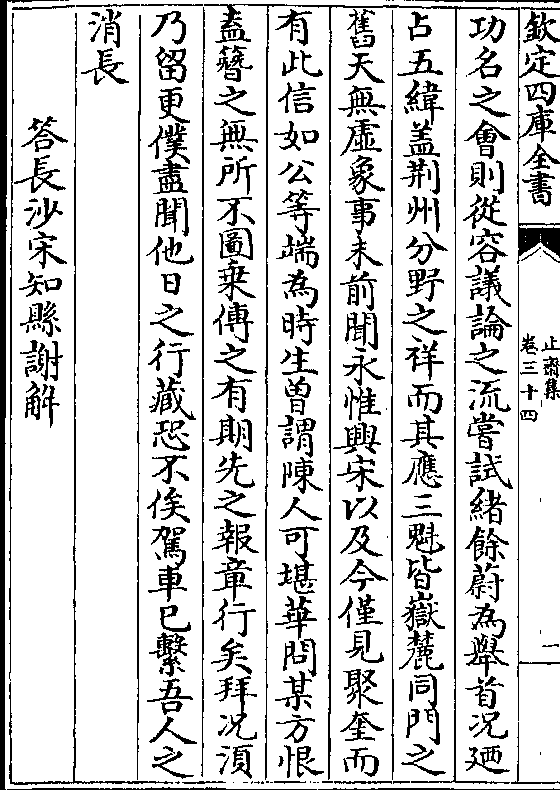 欽定四庫全書
止齋集
卷三十四
一
功名之會則從容議論之流嘗試緒餘蔚為舉首况廼
占五緯盖荆州分野之祥而其應三魁皆嶽麓同門之
舊天無虛象事未前聞永惟興宋以及今僅見聚奎而
有此信如公等端為時生曽謂陳人可堪華問某方恨
盍簪之無所不圖乗傳之有期先之報章行矣拜况湏
乃留更僕盡聞他日之行藏恐不俟駕車已繫吾人之
消長
荅長沙宋知縣謝解